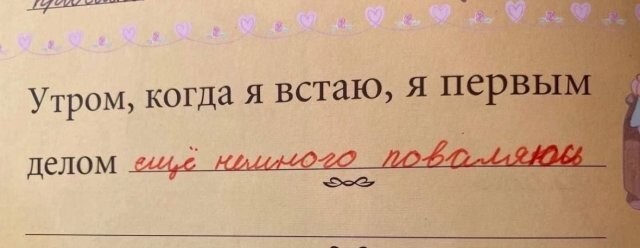 Утром, когда я встаю, я первым
делом ещё немного поваляюсь